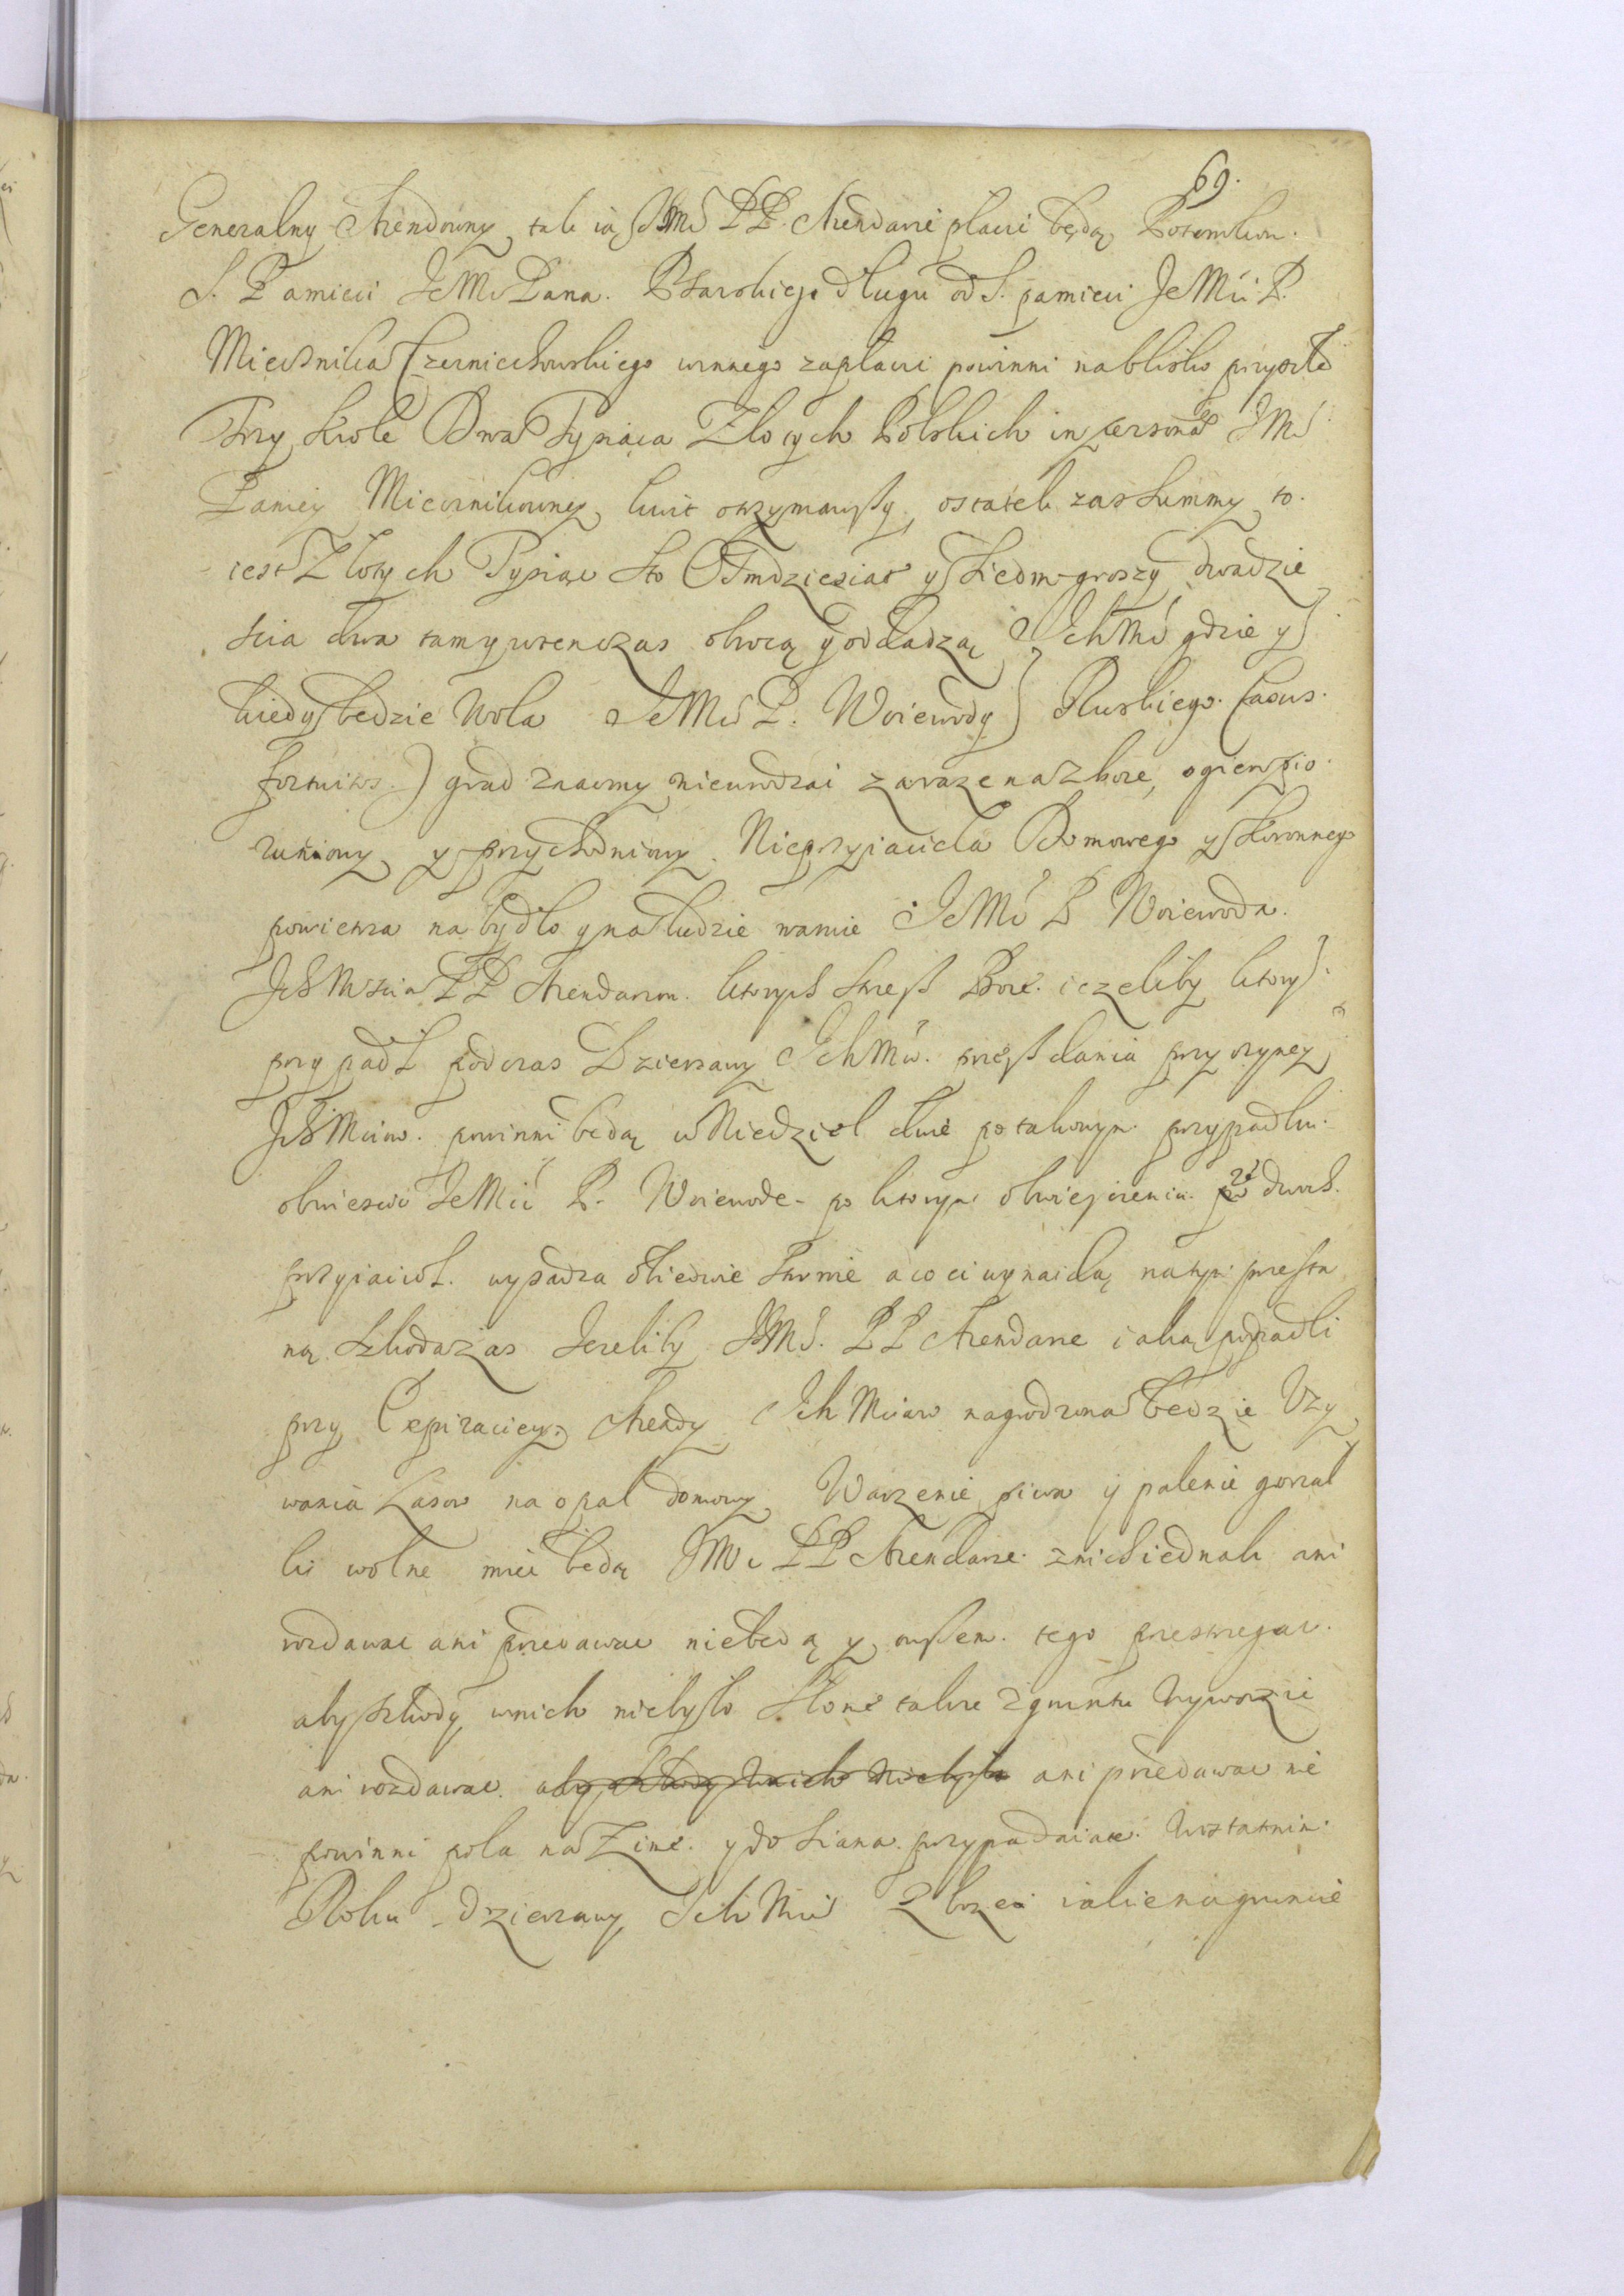 69.
Generalny Arendowny tak ią IchMć PP. Arendarze płacic będą, Potomkom.
S. Pamieci JeMć Pana. Pstarskiego długu od S. pamieci JeMći P.
Miecznika Czerniechowskiego winnego zapłaci powinni na blisko przyszłe
Trzy Krole Dwa Tysiąca Złotych Polskich in persona JMć
Paniey Miecznikowney kwit otrzymawszy, ostatek zas summy to.
iest Złotych Tysiąc sto Osmdziesiat y siedm groszy dwadzie
scia dwa tamy wtenczas obrocą y oddadzą IchMć gdzie y
kiedy bedzie Wola JeMć P. Woiewody Ruskiego. Casus.
fortuitos.) grad znaczny nieurodzai zaraze na zboze, ogien pio.
runowy y przychodniowy. Nieprzyiaciela Domowego y Koronnego
powietrza na bydło y na ludzie warnie JeMć P Woiewoda.
IchMsciom PP Arendarzom. ktorych strzesz Boze. iezeliby ktory
przypadł podczas Dzierzawy IchMć. prosz dania przyczyney
IchMciow. powinni bedą w Niedziel dwie po takowym. przypadku.
obwiescic JeMći P. Woiewode po ktorym obwieszczeniu. ze dwuch.
przyiacioł. wysadza obiedwie stronie a co ci uznaidą na tym przesta
ną. szkoda zas Jezeliby IMć. PP Arendarze iaką popadli
przy Expiraciey Arendy IchMciow nagrodzona bedzie Uzy
wania Lasow na opał domowy Warzenie piwa y palenie gorzał
ki wolne miec bedą IMć PP Arendarze. z nich iednak ani
rozdawac ani przedawac niebedą y owszem. tego przestrzegac.
aby szkody wnich niebyło Słome takze z gruntu wywozic
ani rozdawac. aby szkody wnich niebyło ani przedawac nie
powinni pola na Zime. y do siana. przypadaiace. w ostatnim.
Roku dzierzawy IchMć Zbozei iakiem gruncie